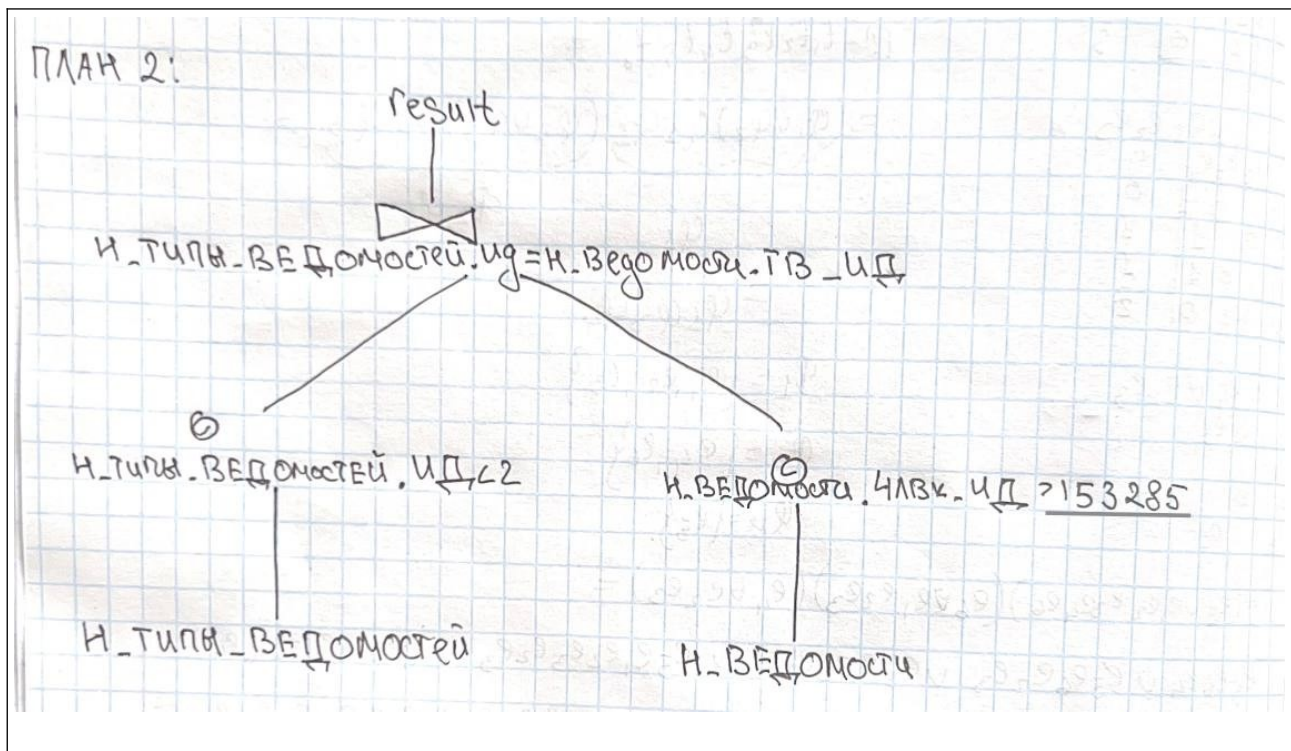 ПЛАН 2:
result
Н_ТИПЫ_ВЕДОМОСТЕЙ.ИД=Н_Ведомости.ТВ_ИД
Н_ТИПЫ.ВЕДОМОСТЕЙ.ИД<2
Н_ВЕДОМОСТИ.ЧЛВК_ИД >153285
Н_ТИПЫ_ВЕДОМОСТЕЙ
Н_ВЕДОМОСТИ